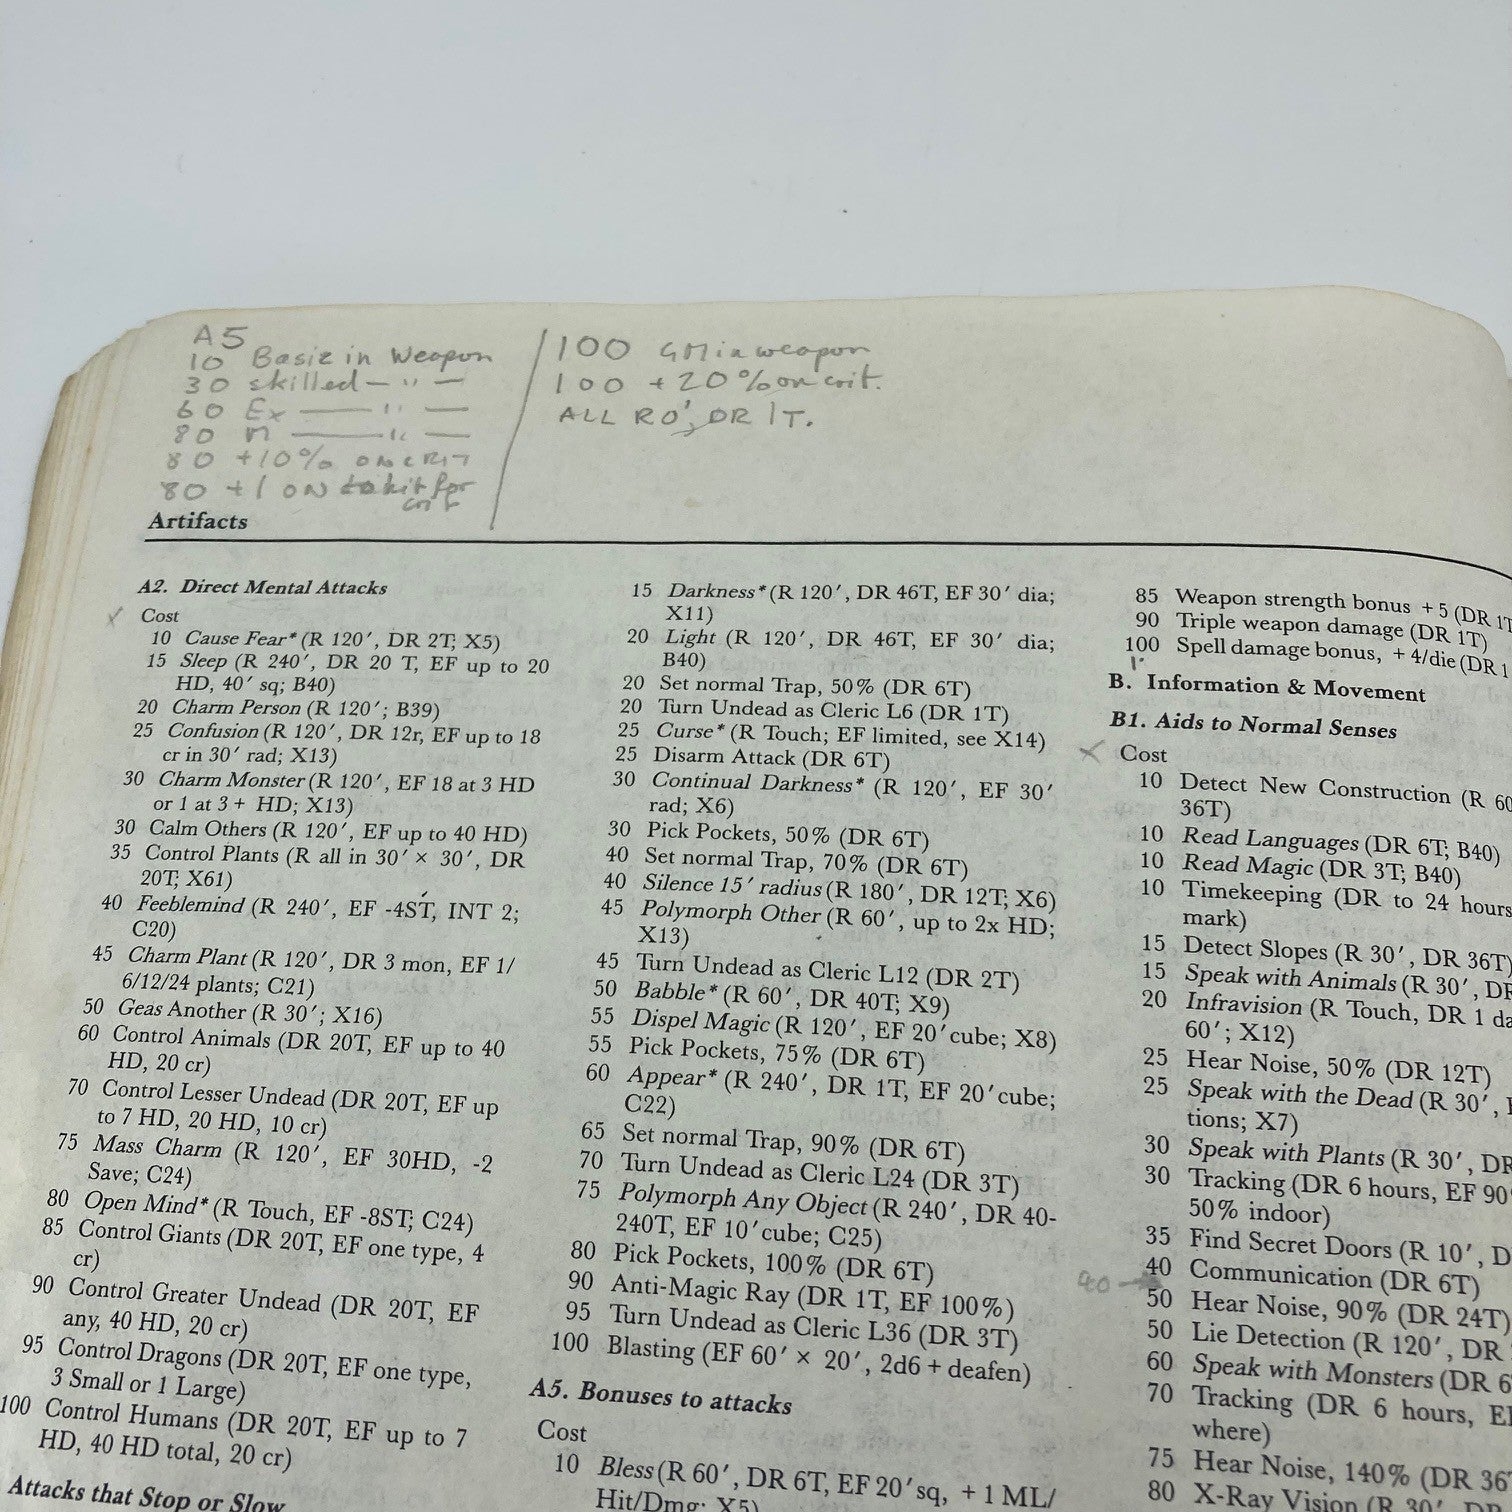 A5
10 Basic in Weapon
30 skilled — " —
60 Ex — " —
80 M — " —
80 +10% ON CRIT
80 +1 ON to hit for
crit
100 GM in weapon
100 +20% on crit.
ALL R0', DR 1T.
Artifacts
A2. Direct Mental Attacks
Cost
10 Cause Fear* (R 120', DR 2T; X5)
15 Sleep (R 240', DR 20 T, EF up to 20
HD, 40' sq; B40)
20 Charm Person (R 120'; B39)
25 Confusion (R 120', DR 12r, EF up to 18
cr in 30' rad; X13)
30 Charm Monster (R 120', EF 18 at 3 HD
or 1 at 3+ HD; X13)
30 Calm Others (R 120', EF up to 40 HD)
35 Control Plants (R all in 30' × 30', DR
20T; X61)
40 Feeblemind (R 240', EF -4ST, INT 2;
C20)
45 Charm Plant (R 120', DR 3 mon, EF 1/
6/12/24 plants; C21)
50 Geas Another (R 30'; X16)
60 Control Animals (DR 20T, EF up to 40
HD, 20 cr)
70 Control Lesser Undead (DR 20T, EF up
to 7 HD, 20 HD, 10 cr)
75 Mass Charm (R 120', EF 30HD, -2
Save; C24)
80 Open Mind* (R Touch, EF -8ST; C24)
85 Control Giants (DR 20T, EF one type, 4
cr)
90 Control Greater Undead (DR 20T, EF
any, 40 HD, 20 cr)
95 Control Dragons (DR 20T, EF one type,
3 Small or 1 Large)
100 Control Humans (DR 20T, EF up to 7
HD, 40 HD total, 20 cr)
Attacks that Stop or Slow
15 Darkness* (R 120', DR 46T, EF 30' dia;
X11)
20 Light (R 120', DR 46T, EF 30' dia;
B40)
20 Set normal Trap, 50% (DR 6T)
20 Turn Undead as Cleric L6 (DR 1T)
25 Curse* (R Touch; EF limited, see X14)
25 Disarm Attack (DR 6T)
30 Continual Darkness* (R 120', EF 30'
rad; X6)
30 Pick Pockets, 50% (DR 6T)
40 Set normal Trap, 70% (DR 6T)
40 Silence 15' radius (R 180', DR 12T; X6)
45 Polymorph Other (R 60', up to 2x HD;
X13)
45 Turn Undead as Cleric L12 (DR 2T)
50 Babble* (R 60', DR 40T; X9)
55 Dispel Magic (R 120', EF 20'cube; X8)
55 Pick Pockets, 75% (DR 6T)
60 Appear* (R 240', DR 1T, EF 20'cube;
C22)
65 Set normal Trap, 90% (DR 6T)
70 Turn Undead as Cleric L24 (DR 3T)
75 Polymorph Any Object (R 240', DR 40-
240T, EF 10'cube; C25)
80 Pick Pockets, 100% (DR 6T)
90 Anti-Magic Ray (DR 1T, EF 100%)
95 Turn Undead as Cleric L36 (DR 3T)
100 Blasting (EF 60' × 20', 2d6 + deafen)
A5. Bonuses to attacks
Cost
10 Bless (R 60', DR 6T, EF 20'sq, +1 ML/
Hit/Dmg; X5)
85 Weapon strength bonus +5 (DR 1T
90 Triple weapon damage (DR 1T)
100 Spell damage bonus, +4/die (DR 1
B. Information & Movement
B1. Aids to Normal Senses
Cost
10 Detect New Construction (R 60
36T)
10 Read Languages (DR 6T; B40)
10 Read Magic (DR 3T; B40)
10 Timekeeping (DR to 24 hours
mark)
15 Detect Slopes (R 30', DR 36T)
15 Speak with Animals (R 30', DR
20 Infravision (R Touch, DR 1 da
60'; X12)
25 Hear Noise, 50% (DR 12T)
25 Speak with the Dead (R 30',
tions; X7)
30 Speak with Plants (R 30', DR
30 Tracking (DR 6 hours, EF 90
50% indoor)
35 Find Secret Doors (R 10', D
40 40 Communication (DR 6T)
50 Hear Noise, 90% (DR 24T)
50 Lie Detection (R 120', DR
60 Speak with Monsters (DR 6
70 Tracking (DR 6 hours, E
where)
75 Hear Noise, 140% (DR 36
80 X-Ray Vision (R 30'